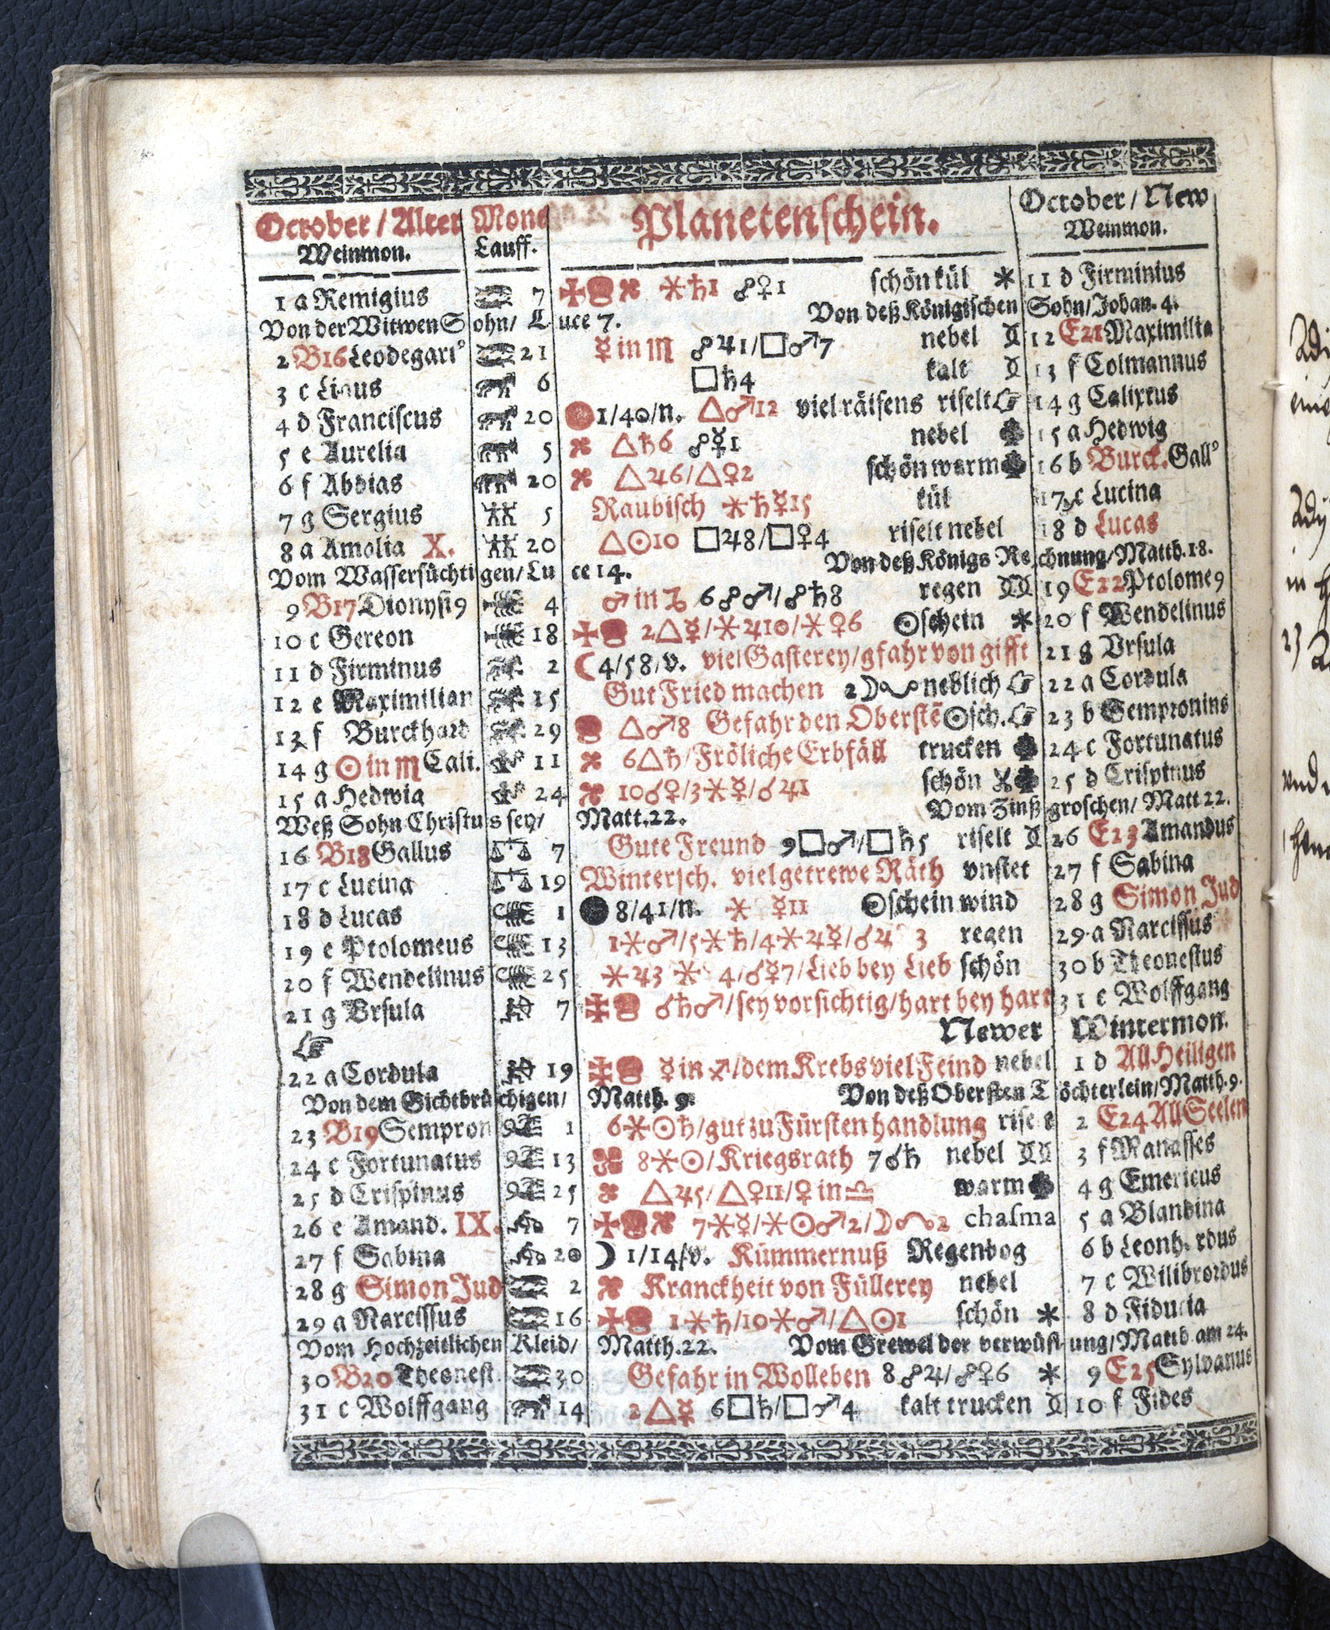 October / Alter Mond Planetenschein. October / New
Weinmon. Lauff. Weinmon.
1 a Remigius 7 ✠ ⚹♄1 ☍♀1 schön kül ⚹ 11 d Firminius
Von der Witwen Sohn/ Luce 7. Von deß Königischen Sohn/Johan. 4.
2 B16 Leodegari⁹ 21 ☿ in ♏ ☍♃1/□♂7 nebel 12 E21 Maximilia
3 c Linus 6 □♄4 kalt 13 f Colmannus
4 d Franciscus 20 1/40/n. △♂12 viel räisens riselt ☞ 14 g Calixtus
5 e Aurelia 5 △♄6 ☍☿1 nebel 15 a Hedwig
6 f Abdias 20 △♃6/△♀2 schön warm 16 b Burck. Gall⁹
7 g Sergius 5 Raubisch ⚹♄☿15 kül 17 c Lucina
8 a Amalia X. 20 △☉10 □♃8/□♀4 riselt nebel 18 d Lucas
Vom Wassersüchtigen/Luce 14. Von deß Königs Rechnung/Matth.18.
9 B17 Dionysi9 4 ♂ in ♑ 6☍♂/☍♄8 regen 19 E22 Ptolome9
10 c Gereon 18 ✠ 2△☿/⚹♃10/⚹♀6 ☉schein ⚹ 20 f Wendelinus
11 d Firminus 2 ☾4/58/v. viel Gasterey/gfahr von gifft 21 g Vrsula
12 e Maximilian 15 Gut Fried machen 2☽ neblich ☞ 22 a Cordula
13 f Burckhard 29 △♂8 Gefahr den Oberstē ☉sch. ☞ 23 b Sempronins
14 g ☉ in ♏ Cali. 11 6△♄/Fröliche Erbfäll trucken 24 c Fortunatus
15 a Hedwig 24 10☌♀/3⚹☿/☌♃1 schön 25 d Crispinus
Weß Sohn Christus sey/ Matt.22. Vom Zinßgroschen/ Matt 22.
16 B18 Gallus 7 Gute Freund 9□♂/□♄5 riselt 26 E23 Amandus
17 c Lucina 19 Wintersch. viel getrewe Räth vnstet 27 f Sabina
18 d Lucas 1 8/41/n. ⚹ ☿11 ☉schein wind 28 g Simon Jud
19 e Ptolomeus 13 1⚹♂/5⚹♄/4⚹♃☿/☌♃ 3 regen 29 a Narcissus
20 f Wendelinus 25 ⚹♃3 ⚹ 4/☌☿7/Lieb bey Lieb schön 30 b Theonestus
21 g Vrsula 7 ✠ ☌♄♂/sey vorsichtig/hart bey hart 31 c Wolffgang
☞ Newer Wintermon.
22 a Cordula 19 ✠ ☿ in ♐/dem Krebs viel Feind nebel 1 d All Heiligen
Von dem Gichtbrüchigen/ Matth. 9. Von deß Obersten Töchterlein/Matth.9.
23 B19 Sempron 1 6⚹☉♄/gut zu Fürsten handlung 2 E24 All Seelen
24 c Fortunatus 13 8⚹☉/Kriegsrath 7☌♄ nebel 3 f Manasses
25 d Crispinus 25 △♃5/△♀11/♀ in ♎ warm 4 g Emericus
26 e Amand. IX. 7 ✠ 7⚹☿/⚹☉♂2/☽ 2 chasma 5 a Blandina
27 f Sabina 20 ☽ 1/14/v. Kümmernuß Regenbog 6 b Leonhardus
28 g Simon Jud 2 Kranckheit von Füllerey nebel 7 c Wilibrordus
29 a Narcissus 16 ✠ 1⚹♄/10⚹♂/△☉1 schön ⚹ 8 d Fiducia
Vom Hochzeitlichen Kleid/ Matth.22. Vom Grewel der verwüstung/Matth am 24.
30 B20 Theonest. 30 Gefahr in Wolleben 8☍♃/☍♀6 ⚹ 9 E25 Sylvanus
31 c Wolffgang 14 2△☿ 6□♄/□♂4 kalt trucken 10 f Fides